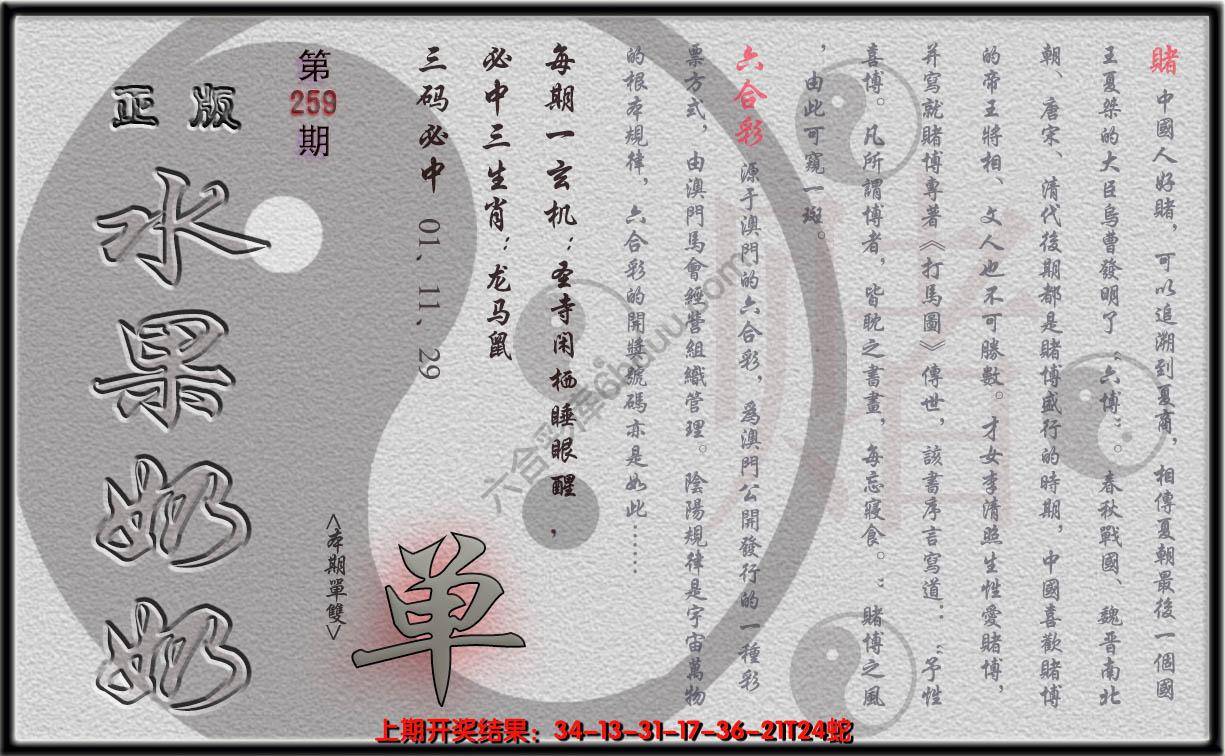 賭 中國人好賭，可以追溯到夏商，相傳夏朝最後一個國
王夏桀的大臣烏曹發明了“六博”。春秋戰國、魏晋南北
朝、唐宋、清代後期都是賭博盛行的時期，中國喜歡賭博
的帝王將相、文人也不可勝數。才女李清照生性愛賭博，
并寫就賭博專著《打馬圖》傳世，該書序言寫道：“予性
喜博。凡所謂博者，皆耽之書畫，每忘寢食。”賭博之風
，由此可窺一斑。
六合彩 源于澳門的六合彩，爲澳門公開發行的一種彩
票方式，由澳門馬會經營組織管理。陰陽規律是宇宙萬物
的根本規律，六合彩的開獎號碼亦是如此……
每期一玄机：圣寺闲栖睡眼醒，
必中三生肖：龙马鼠
三码必中 01、11、29
第259期
正版
水果奶奶
<本期單雙>
单
六合彩库6huuu.com
賭
上期开奖结果：34-13-31-17-36-21T24蛇